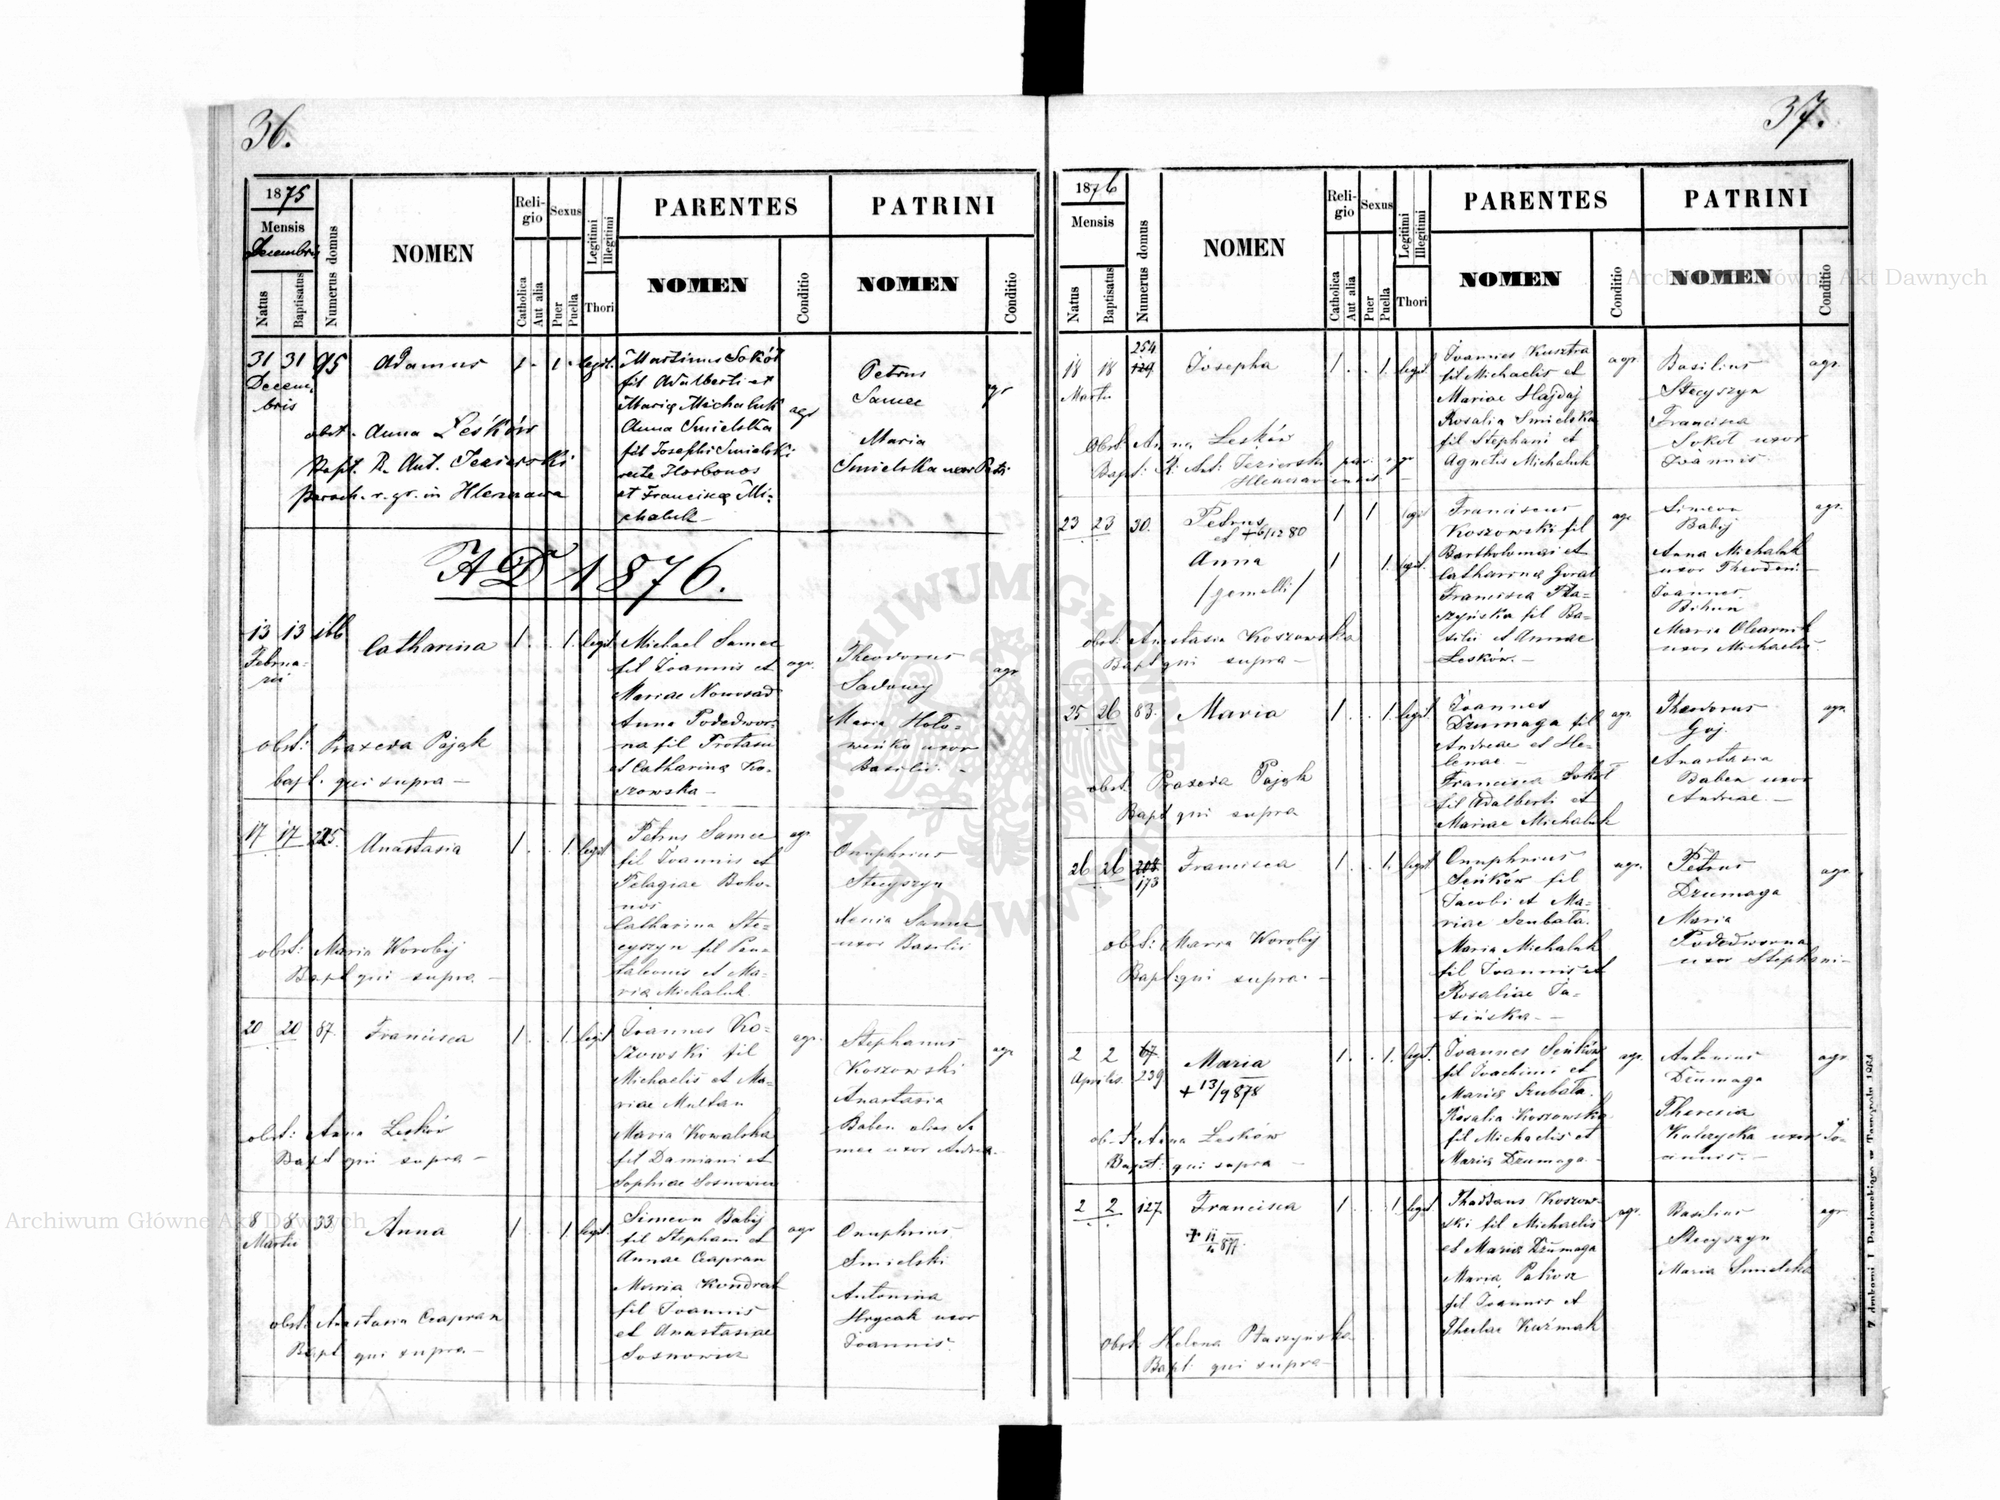 36.
1875
Mensis
Decembris
Natus
Baptisatus
Numerus domus
NOMEN
Reli-
gio
Catholica
Aut alia
Sexus
Puer
Puella
Legitimi
Illegitimi
Thori
PARENTES
NOMEN
Conditio
PATRINI
NOMEN
Conditio
31 31 95 Adamus 1 . 1 . legit.
Decem-
bris
Martinus Sokół
fil Adalberti et
Mariæ Michaluk
Anna Smielska
fil Josephi Smielski
recte Horbonos
et Franciscæ Mi-
chaluk
agr
Petrus
Samec
agr
Maria
Smielska uxor Petri
obst. Anna Leśków
Bapt. R. Ant. Jezierski
paroch. r. gr. in Hleszczawa
AD 1876.
13 13 166 Catharina 1 . . 1. legit
Februa-
rii
Michael Samec
fil Joannis et
Mariae Nowosad
Anna Podedwor-
na fil Protasii
et Catharina Ko-
szowska
agr.
Theodorus
Sadowy
Maria Hoło-
wenko uxor
Basilii
agr
obst: Praxeda Pająk
bapt. qui supra
17 17 225. Anastasia 1 . . 1. legit
Petrus Samec
fil Joannis et
Pelagiae Boho-
nos
Catharina Ste-
cyszyn fil Pan-
taleonis et Ma-
ria Michaluk
agr
Onuphrius
Stecyszyn
Xenia Samec
uxor Basilii
obst: Maria Worobij
Bapt qui supra
20 20 87. Francisca 1 . . 1. legit
Joannes Ko-
szowski fil
Michaelis et Ma-
riae Multan
Maria Kowalska
fil Damiani et
Sophiae Sosnowicz
agr.
Stephanus
Koszowski
Anastasia
Baben alias Sa
mec uxor Andrea
agr
obst: Anna Leśków
Bapt qui supra
8 8 33 Anna 1. . 1 legit.
Martii
Simeon Babij
fil Stephani et
Annae Czapran
Maria Kondrat
fil Joannis
et Anastasiae
Sosnowicz
agr
Onuphrius
Smielski
Antonina
Hrycak uxor
Joannis
obst: Anastasia Czapran
Bapt qui supra
37.
1876
Mensis
Natus
Baptisatus
Numerus domus
NOMEN
Reli-
gio
Catholica
Aut alia
Sexus
Puer
Puella
Legitimi
Illegitimi
Thori
PARENTES
NOMEN
Conditio
PATRINI
NOMEN
Conditio
254
18 18 129 Josepha 1 . . 1. legit
Martii
Joannes Kusztra
fil Michaelis et
Mariae Hajdaj
Rosalia Smielska
fil Stephani et
Agnetis Michaluk
agr
Basilius
Stecyszyn
Francisca
Sokoł uxor
Joannis
agr.
Obst: Anna Leśków
Bapt: R. Ant: Jezierski par. r. gr
Hleszczaviensis
23 23 30. Petrus 1 1 legit
et + 6/12 80
Anna 1 1. legit.
/gemelli/
Franciscus
Koszowski fil
Bartholomæi et
Catharinæ Goral
Francisca Pta-
szyńska fil Ba-
silii et Annae
Leśków.
agr
Simeon
Babij
Anna Michaluk
uxor Theodori
Joannes
Bihun
Maria Olearnik
uxor Michaelis
agr.
obst: Anastasia Koszowska
Bapt qui supra
25 26 83. Maria 1 . . 1. legit.
Joannes
Dzumaga fil
Andreae et He-
lenae
Francisca Sokoł
fil Adalberti et
Mariae Michaluk
agr.
Theodorus
Goj.
Anastasia
Baben uxor
Andreae.
agr.
obst. Praxeda Pająk
Bapt qui supra
26 26 208 Francisca 1 . . 1. legit.
173
Onuphrius
Seńków fil
Jacobi et Ma-
riae Szubała.
Maria Michaluk
fil Joannis et
Rosaliae Ja-
sińska
agr.
Petrus
Dzumaga
Maria
Podedworna
uxor Stephani
agr.
obst: Maria Worobij
Bapt qui supra.
2 2 67. Maria 1. . . 1. legit.
Aprilis. 239 + 13/9 878
Joannes Seńków
fil Joachimi et
Mariæ Szubała.
Rosalia Koszowska
fil Michaelis et
Mariæ Dzumaga
agr.
Antonius
Dzumaga
Theresia
Kulczycka uxor Jo-
annis.
agr.
obst. Anna Leśków
Bapt: qui supra
2 2 127. Francisca 1 . . 1 legit
+ 11/4 877.
Thaddæus Koszow-
ski fil Michaelis
et Mariæ Dzumaga
Maria Pakosz
fil Joannis et
Theclae Kuźmak
agr.
Basilius
Stecyszyn
Maria Smielska
agr.
Obst: Helena Ptaszyńska
Bapt: qui supra
Z drukarni J. Pawłowskiego w Tarnopolu
Archiwum Główne Akt Dawnych
Archiwum Główne Akt Dawnych
ARCHIWUM GŁÓWNE AKT DAWNYCH